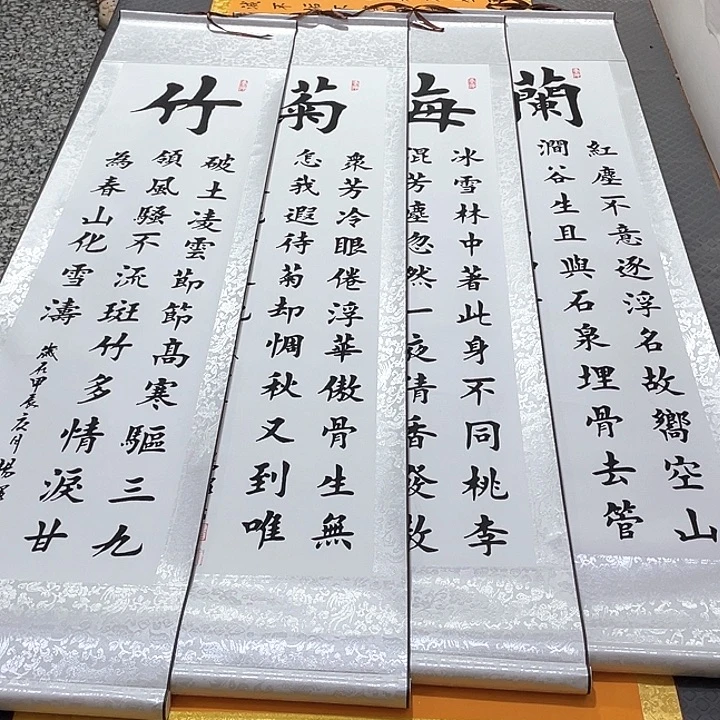 蘭
紅塵不意逐浮名故嚮空山
澗谷生且與石泉埋骨去管
梅
冰雪林中著此身不同桃李
混芳塵忽然一夜清香發散
菊
衆芳冷眼倦浮華傲骨生無
怎我遐待菊却惆秋又到唯
竹
破土凌雲節節高寒驅三九
領風騷不流斑竹多情淚甘
為春山化雪濤
歲在甲辰